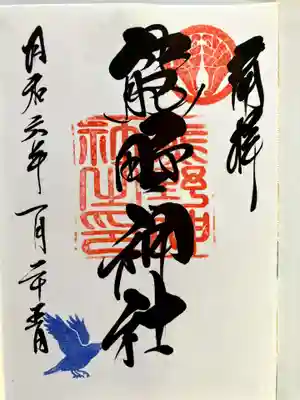 奉拝
熊野神社
熊野神
社之印
令和六年一月二十日